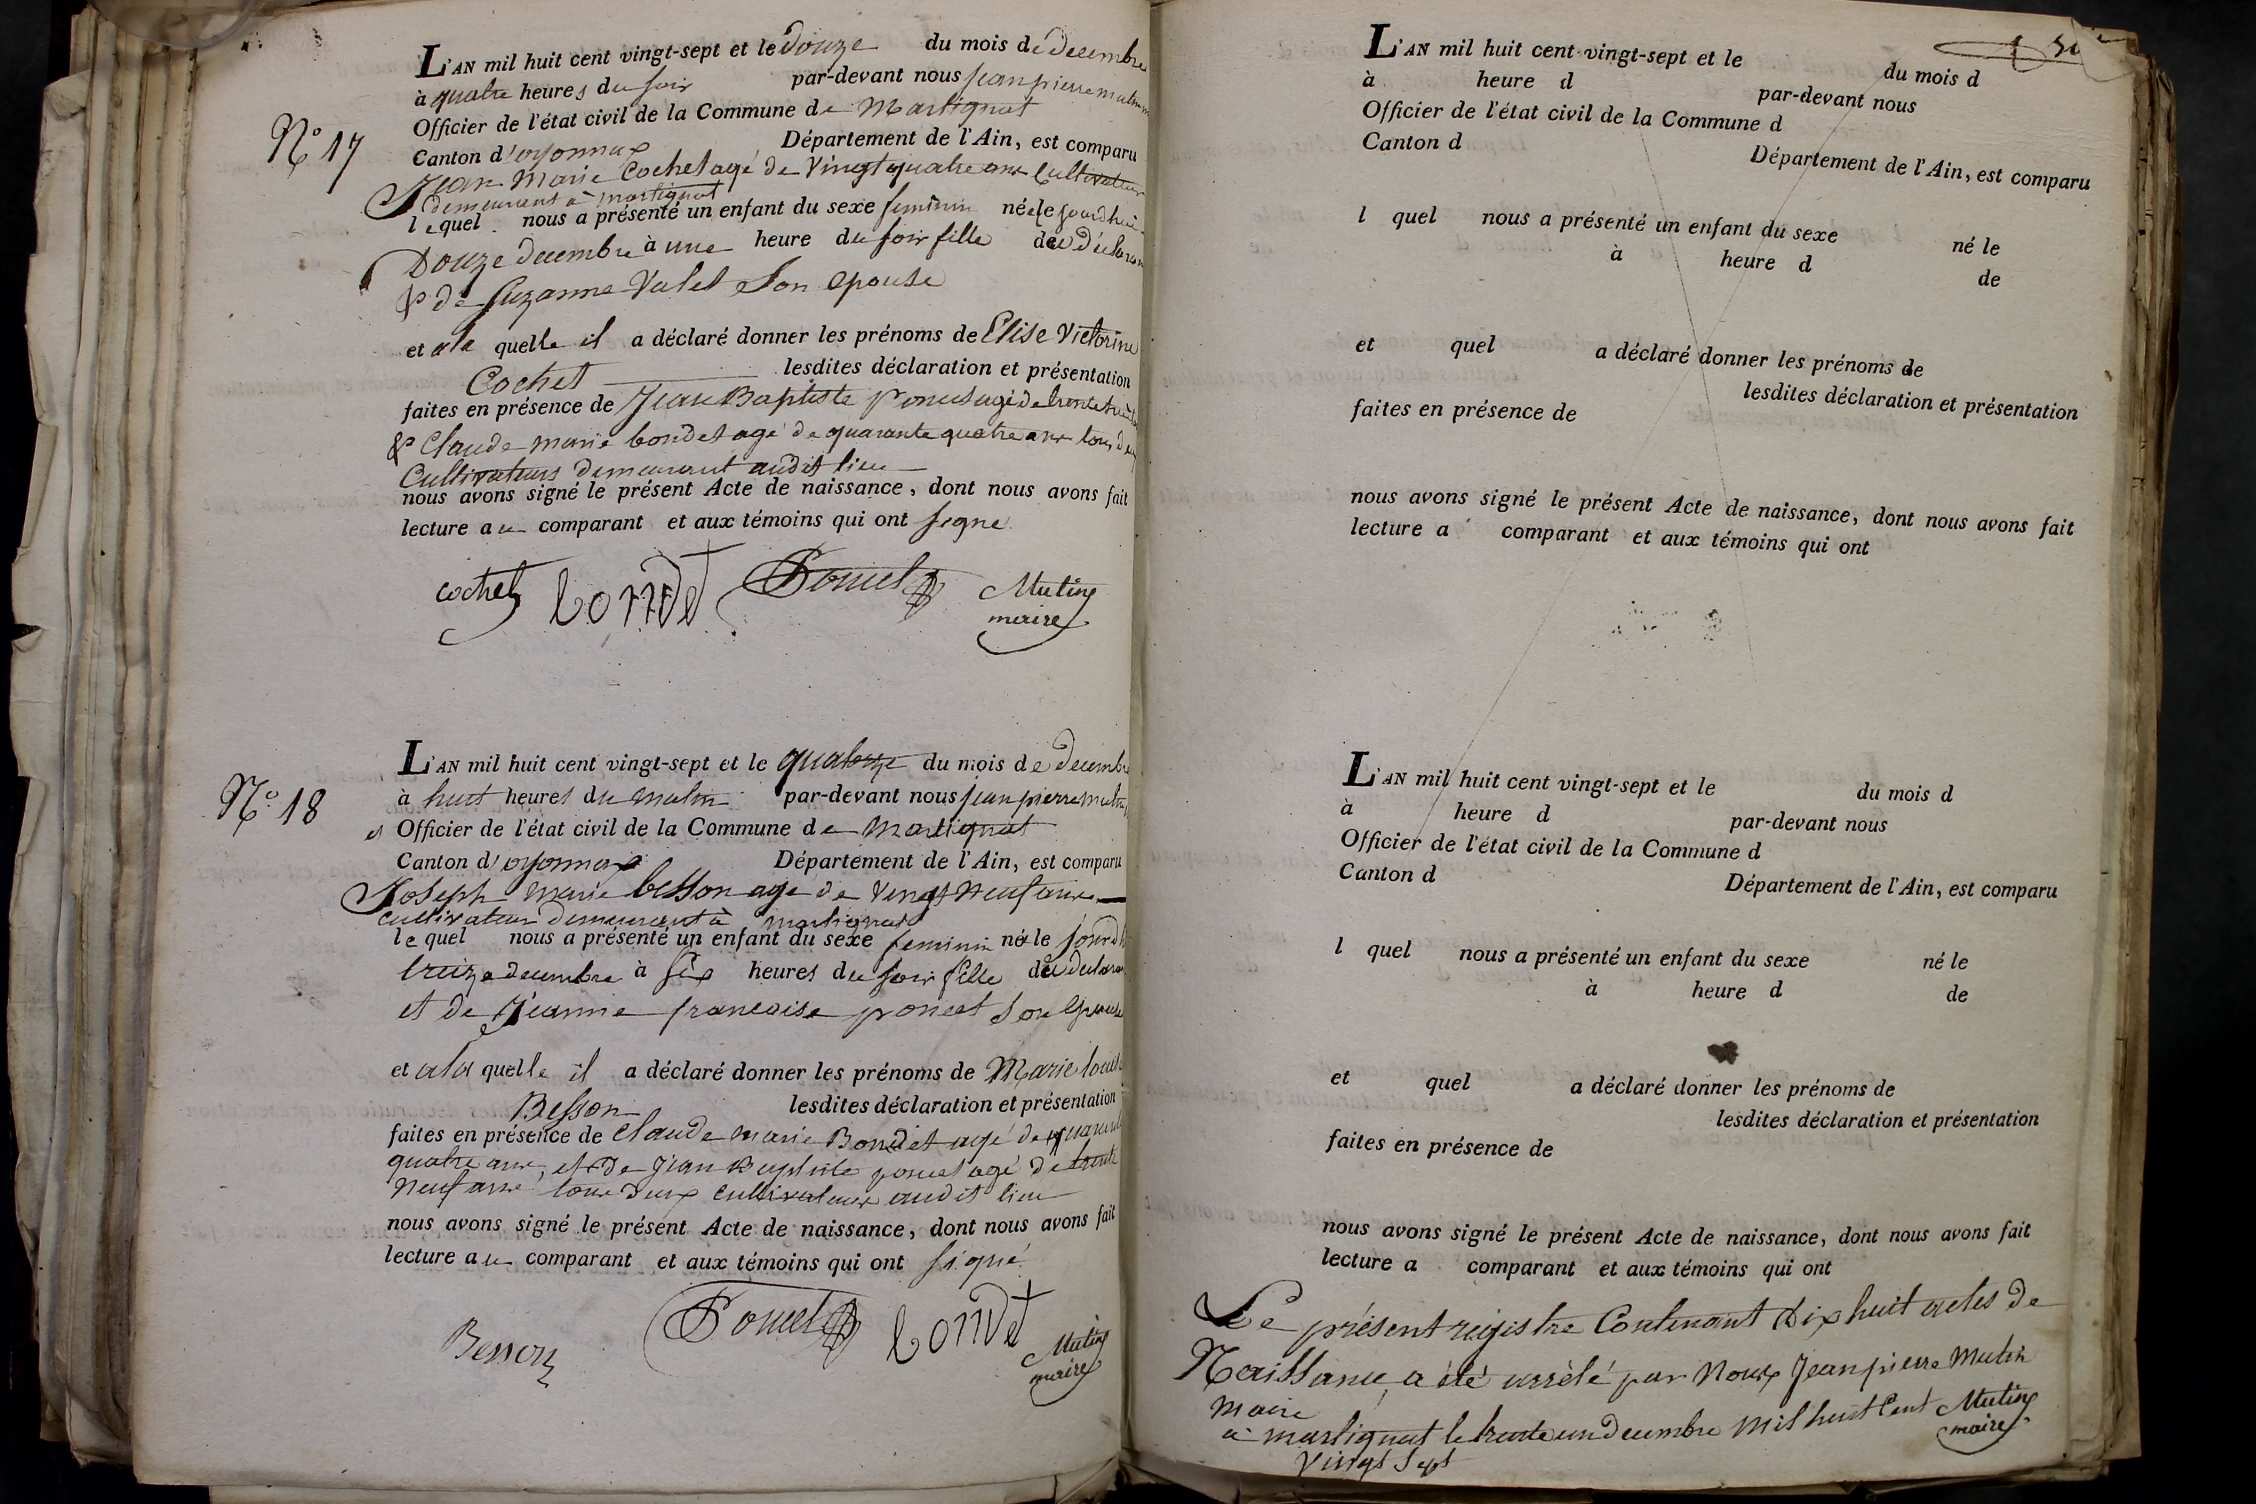 L'AN mil huit cent vingt-sept et le douze du mois de decembre
à quatre heures du soir par-devant nous jean pierre mutin
Officier de l'état civil de la Commune de Martignat
N° 17
Canton d'oyonnax Département de l'Ain, est comparu
Jean Marie Cochet agé de vingt quatre ans Cultivateur
demeurant à martignat
lequel nous a présenté un enfant du sexe feminin née le jourdhui
Douze decembre à une heure du soir fille du déclarant
& de Suzanne Valet Son epouse
et a la quelle il a déclaré donner les prénoms de Elise Victorine
Cochet lesdites déclaration et présentation
faites en présence de Jean Baptiste poncet agé de trente huit
& Claude marie bondet agé de quarante quatre ans tous deux
Cultivateurs demeurant audit lieu
nous avons signé le présent Acte de naissance, dont nous avons fait
lecture au comparant et aux témoins qui ont signé
cochet bondet Poncet Mutin
maire
L'AN mil huit cent vingt-sept et le quatorze du mois de decembre
N° 18
à huit heures du matin par-devant nous jean pierre mutin
Officier de l'état civil de la Commune de Martignat
Canton d'oyonnax Département de l'Ain, est comparu
Joseph marie besson age de vingt neuf ans
cultivateur demeurant à martignat
lequel nous a présenté un enfant du sexe feminin né le jourdh
treize decembre à six heures du soir fille du declarant
et de Jeanne francoise poncet son epouse
et a la quelle il a déclaré donner les prénoms de Marie louise
Besson lesdites déclaration et présentation
faites en présence de Claude marie Bondet agé de quarante
quatre ans, et de Jean Baptiste poncet agé de trente
neuf ans tous deux cultivateurs audit lieu
nous avons signé le présent Acte de naissance, dont nous avons fait
lecture au comparant et aux témoins qui ont signé
Besson Poncet bondet Mutin
maire
L'AN mil huit cent vingt-sept et le du mois d
à heure d par-devant nous
Officier de l'état civil de la Commune d
Canton d Département de l'Ain, est comparu
l quel nous a présenté un enfant du sexe né le
à heure d de
et quel a déclaré donner les prénoms de
lesdites déclaration et présentation
faites en présence de
nous avons signé le présent Acte de naissance, dont nous avons fait
lecture a comparant et aux témoins qui ont
L'AN mil huit cent vingt-sept et le du mois d
à heure d par-devant nous
Officier de l'état civil de la Commune d
Canton d Département de l'Ain, est comparu
l quel nous a présenté un enfant du sexe né le
à heure d de
et quel a déclaré donner les prénoms de
lesdites déclaration et présentation
faites en présence de
nous avons signé le présent Acte de naissance, dont nous avons fait
lecture a comparant et aux témoins qui ont
Le présent registre Contenant Dix huit actes de
Naissance, a été arrêté par Nous Jean pierre Mutin
Maire
à martignat le trente un decembre mil huit Cent
Vingt Sept
Mutin
maire